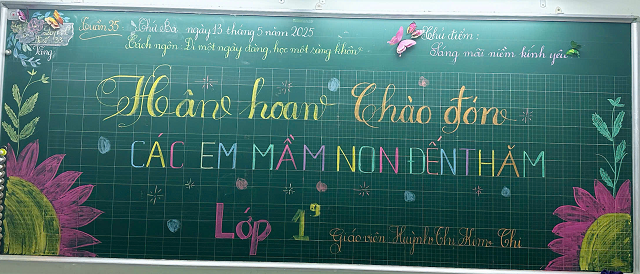 Tuần 35 Thứ Ba ngày 13 tháng 5 năm 2025
Chủ điểm:
Trích ngôn: Đi một ngày đàng, học một sàng khôn
Sáng mãi niềm kính yêu
Hân hoan Chào đón
CÁC EM MẦM NON ĐẾN THĂM
Lớp 1
Giáo viên Huỳnh Thị Chi